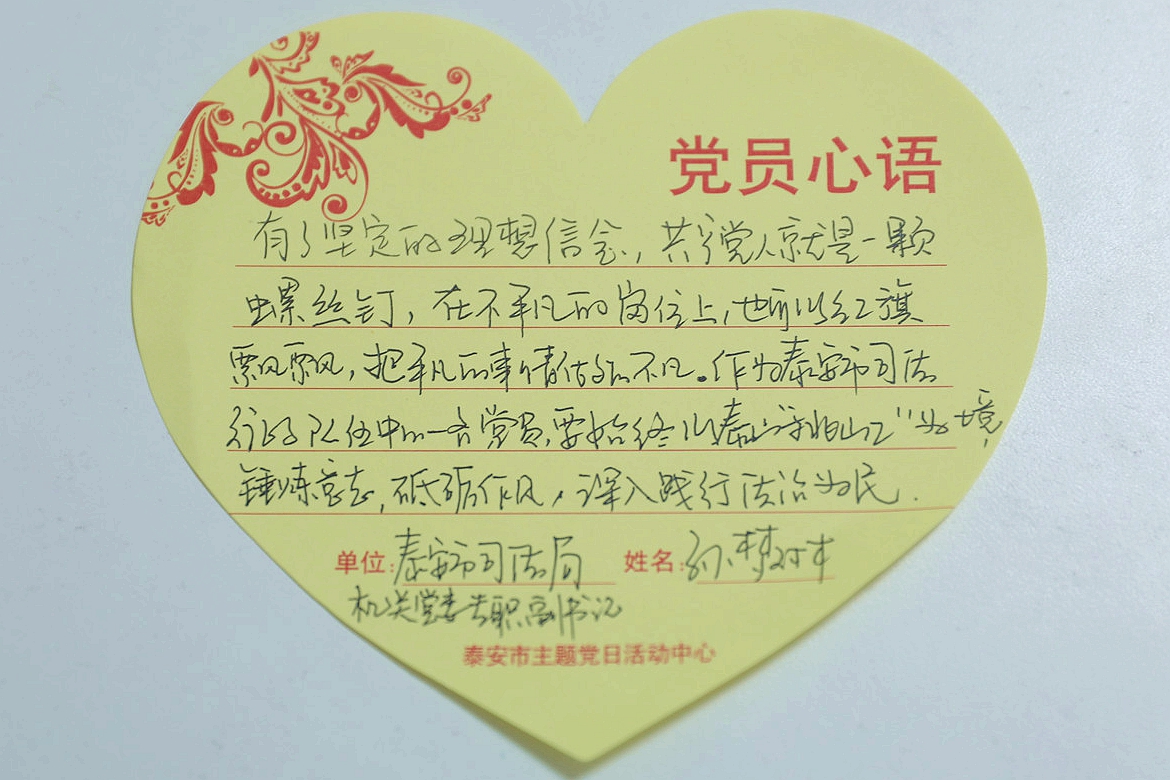 党员心语
有了坚定的理想信念,共产党人就是一颗
螺丝钉,在不平凡的岗位上,也能以红旗
飘飘,把平凡的事情做的不凡。作为泰安市司法
行政队伍中的一名党员,要始终以泰山"为境,
锤炼意志,砥砺作风,深入践行法治为民.
单位:泰安市司法局 姓名:孙
机关党委专职副书记
泰安市主题党日活动中心